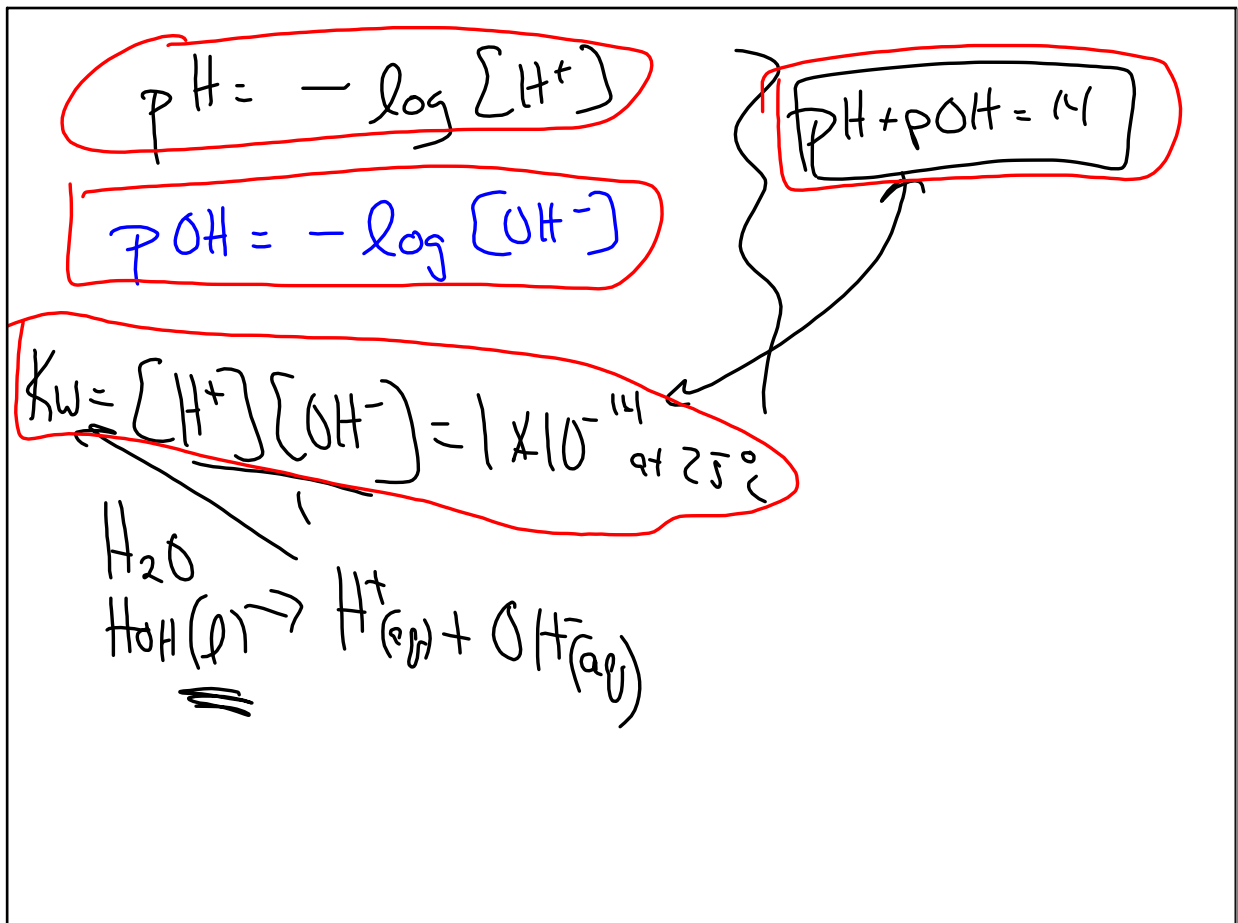 pH = - log [H⁺]
pH + pOH = 14
pOH = - log [OH⁻]
Kw = [H⁺][OH⁻] = 1 x 10⁻¹⁴ at 25°C
H₂O
HOH(l) → H⁺(aq) + OH⁻(aq)